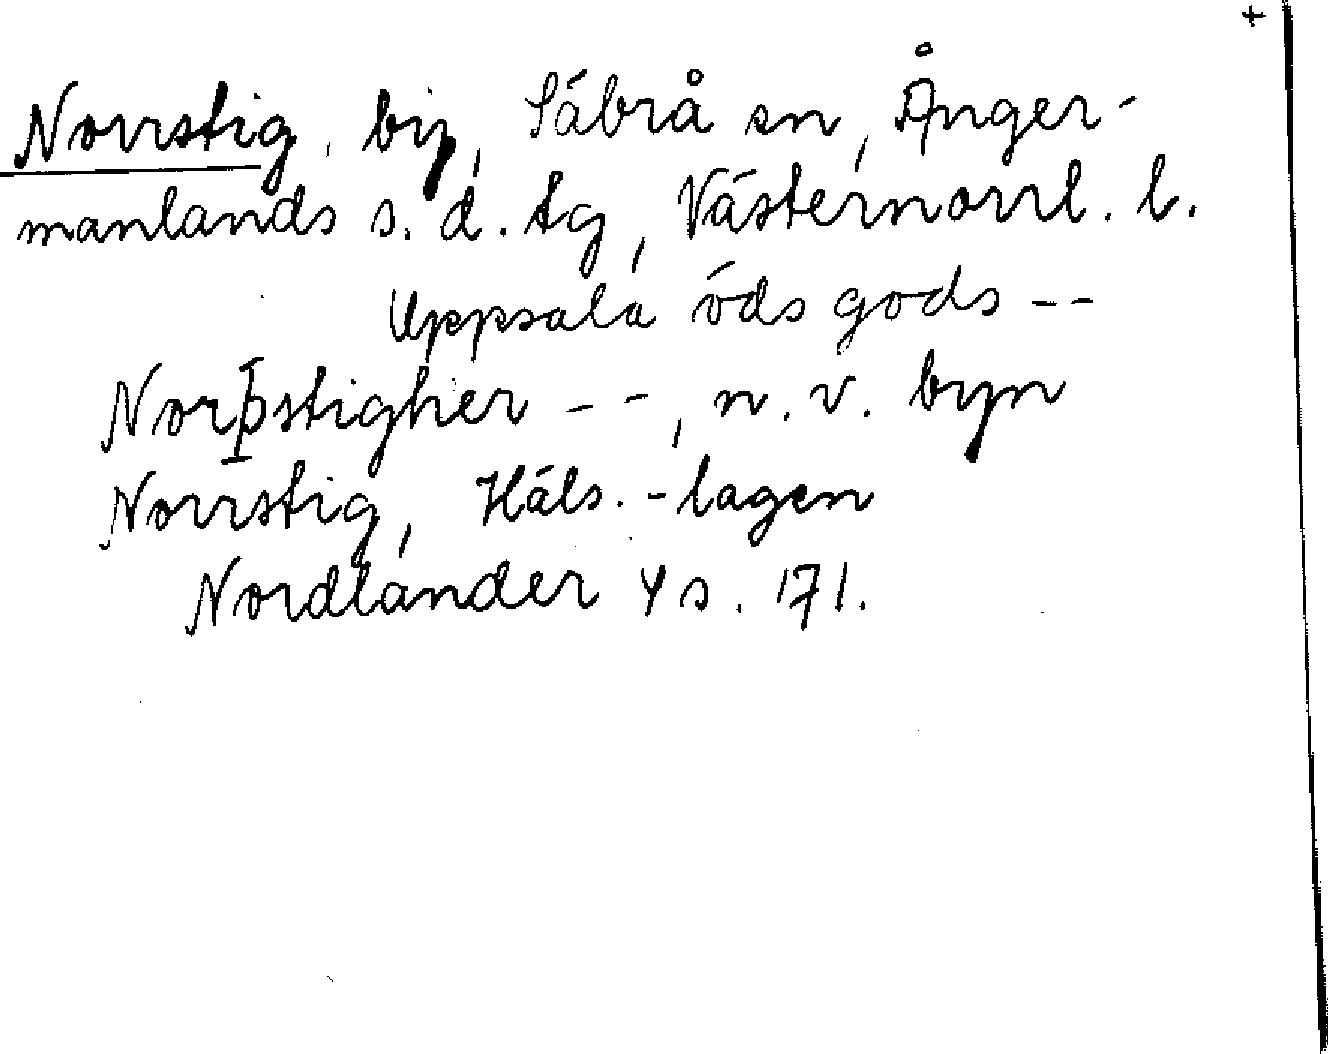 +
Norrstig, by, Säbrå sn, Ånger-
manlands s. d. tg, Västernorrl. l.
Uppsala öds gods --
Norþstigher --, n. v. byn
Norrstig, Häls.-lagen
Nordlander 4 s. 171.